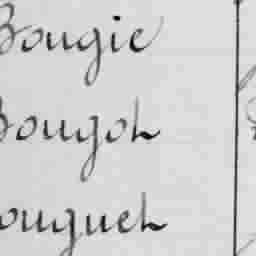 Bougie
Bougot
ouguet